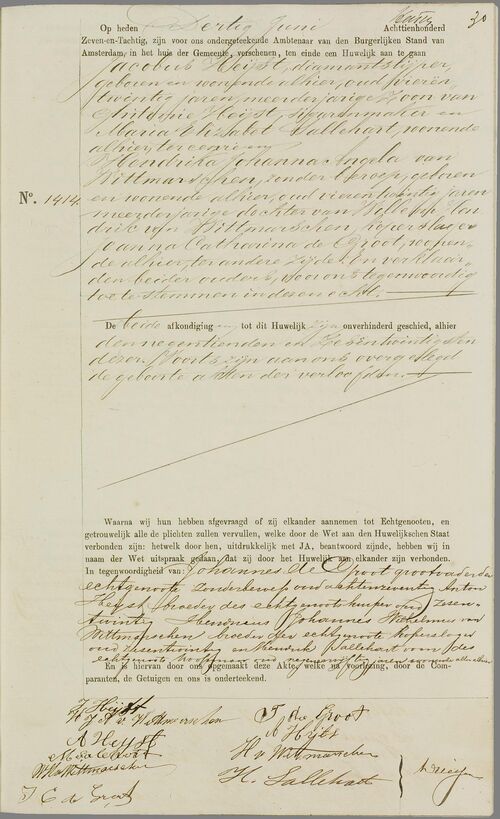 30
Op heden den Dertig Juni Achttienhonderd
Zeven-en-Tachtig, zijn voor ons ondergeteekende Ambtenaar van den Burgerlijken Stand van
Amsterdam, in het huis der Gemeente, verschenen, ten einde een Huwelijk aan te gaan
Jacobus Heijst, diamantslijper,
geboren en wonende alhier, oud
twintig jaren, meerderjarige zoon van
Antonie Heijst, en
Maria Elizabet Sallehart, wonende
alhier, ter eenre en
Hendrika Johanna Angela van
Wittmarschen, zonder beroep, geboren
No. 1414.
en wonende alhier, oud vierentwintig jaren
meerderjarige dochter van Willem Hen
drik van Wittmarschen, koperslager en
Joanna Catharina de Groot, wonen
de alhier, ter andere zijde. En verklaar
den beider ouders, voor ons tegenwoordig
toe te stemmen in deze echt.
De beide afkondigingen tot dit Huwelijk zijn onverhinderd geschied, alhier
den negentienden en zesentwintigsten
dezer. Voorts zijn aan ons overgelegd
de geboorte akten der verloofden.
Waarna wij hun hebben afgevraagd of zij elkander aannemen tot Echtgenooten, en
getrouwelijk alle de plichten zullen vervullen, welke door de Wet aan den Huwelijkschen Staat
verbonden zijn: hetwelk door hen, uitdrukkelijk met JA, beantwoord zijnde, hebben wij in
naam der Wet uitspraak gedaan, dat zij door het Huwelijk aan elkander zijn verbonden.
In tegenwoordigheid van: Johannes de Groot grootvader der
echtgenoote zonder beroep oud achtenzeventig Anton
Heijst broeder des echtgenoots kuiper oud zesen-
twintig Johannes Wilhelmus van
Wittmarschen broeder der echtgenoote koperslager
oud zesentwintig en Hendrik Sallehart oom des
echtgenoots oud negenenvijftig jaren wonende allen alhier
En is hiervan door ons opgemaakt deze Akte, welke na voorlezing, door de Com-
paranten, de Getuigen en ons is onderteekend.
J Heijst
H J A v Wittmarschen
A Heijst
W H v Wittmarschen
J C de Groot
J de Groot
A Heijst
H v Wittmarschen
H. Sallehart